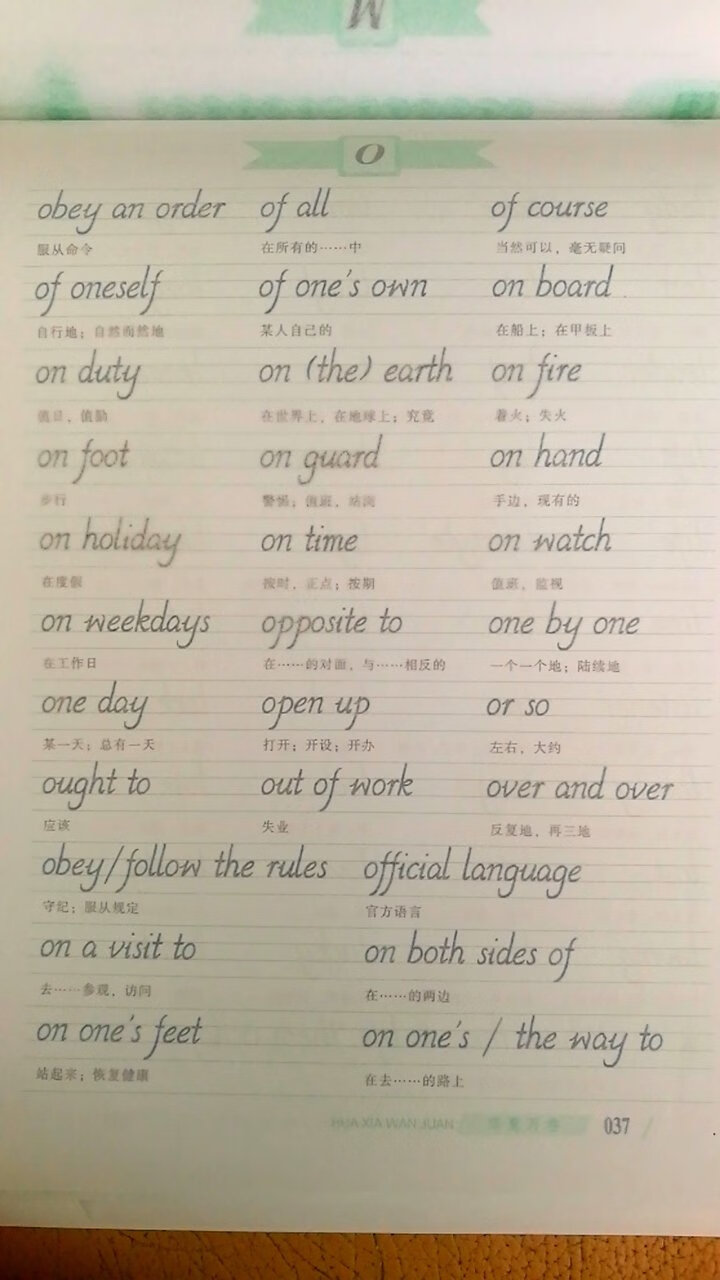 M
O
obey an order of all of course
服从命令 在所有的……中 当然可以，毫无疑问
of oneself of one's own on board
自行地；自然而然地 某人自己的 在船上；在甲板上
on duty on (the) earth on fire
值日，值勤 在世界上，在地球上；究竟 着火；失火
on foot on guard on hand
步行 警惕；值班，站岗 手边，现有的
on holiday on time on watch
在度假 按时，正点；按期 值班，监视
on weekdays opposite to one by one
在工作日 在……的对面，与……相反的 一个一个地；陆续地
one day open up or so
某一天；总有一天 打开；开设；开办 左右，大约
ought to out of work over and over
应该 失业 反复地，再三地
obey/follow the rules official language
守纪；服从规定 官方语言
on a visit to on both sides of
去……参观，访问 在……的两边
on one's feet on one's / the way to
站起来；恢复健康 在去……的路上
HUA XIA WAN JUAN 华夏万卷 037